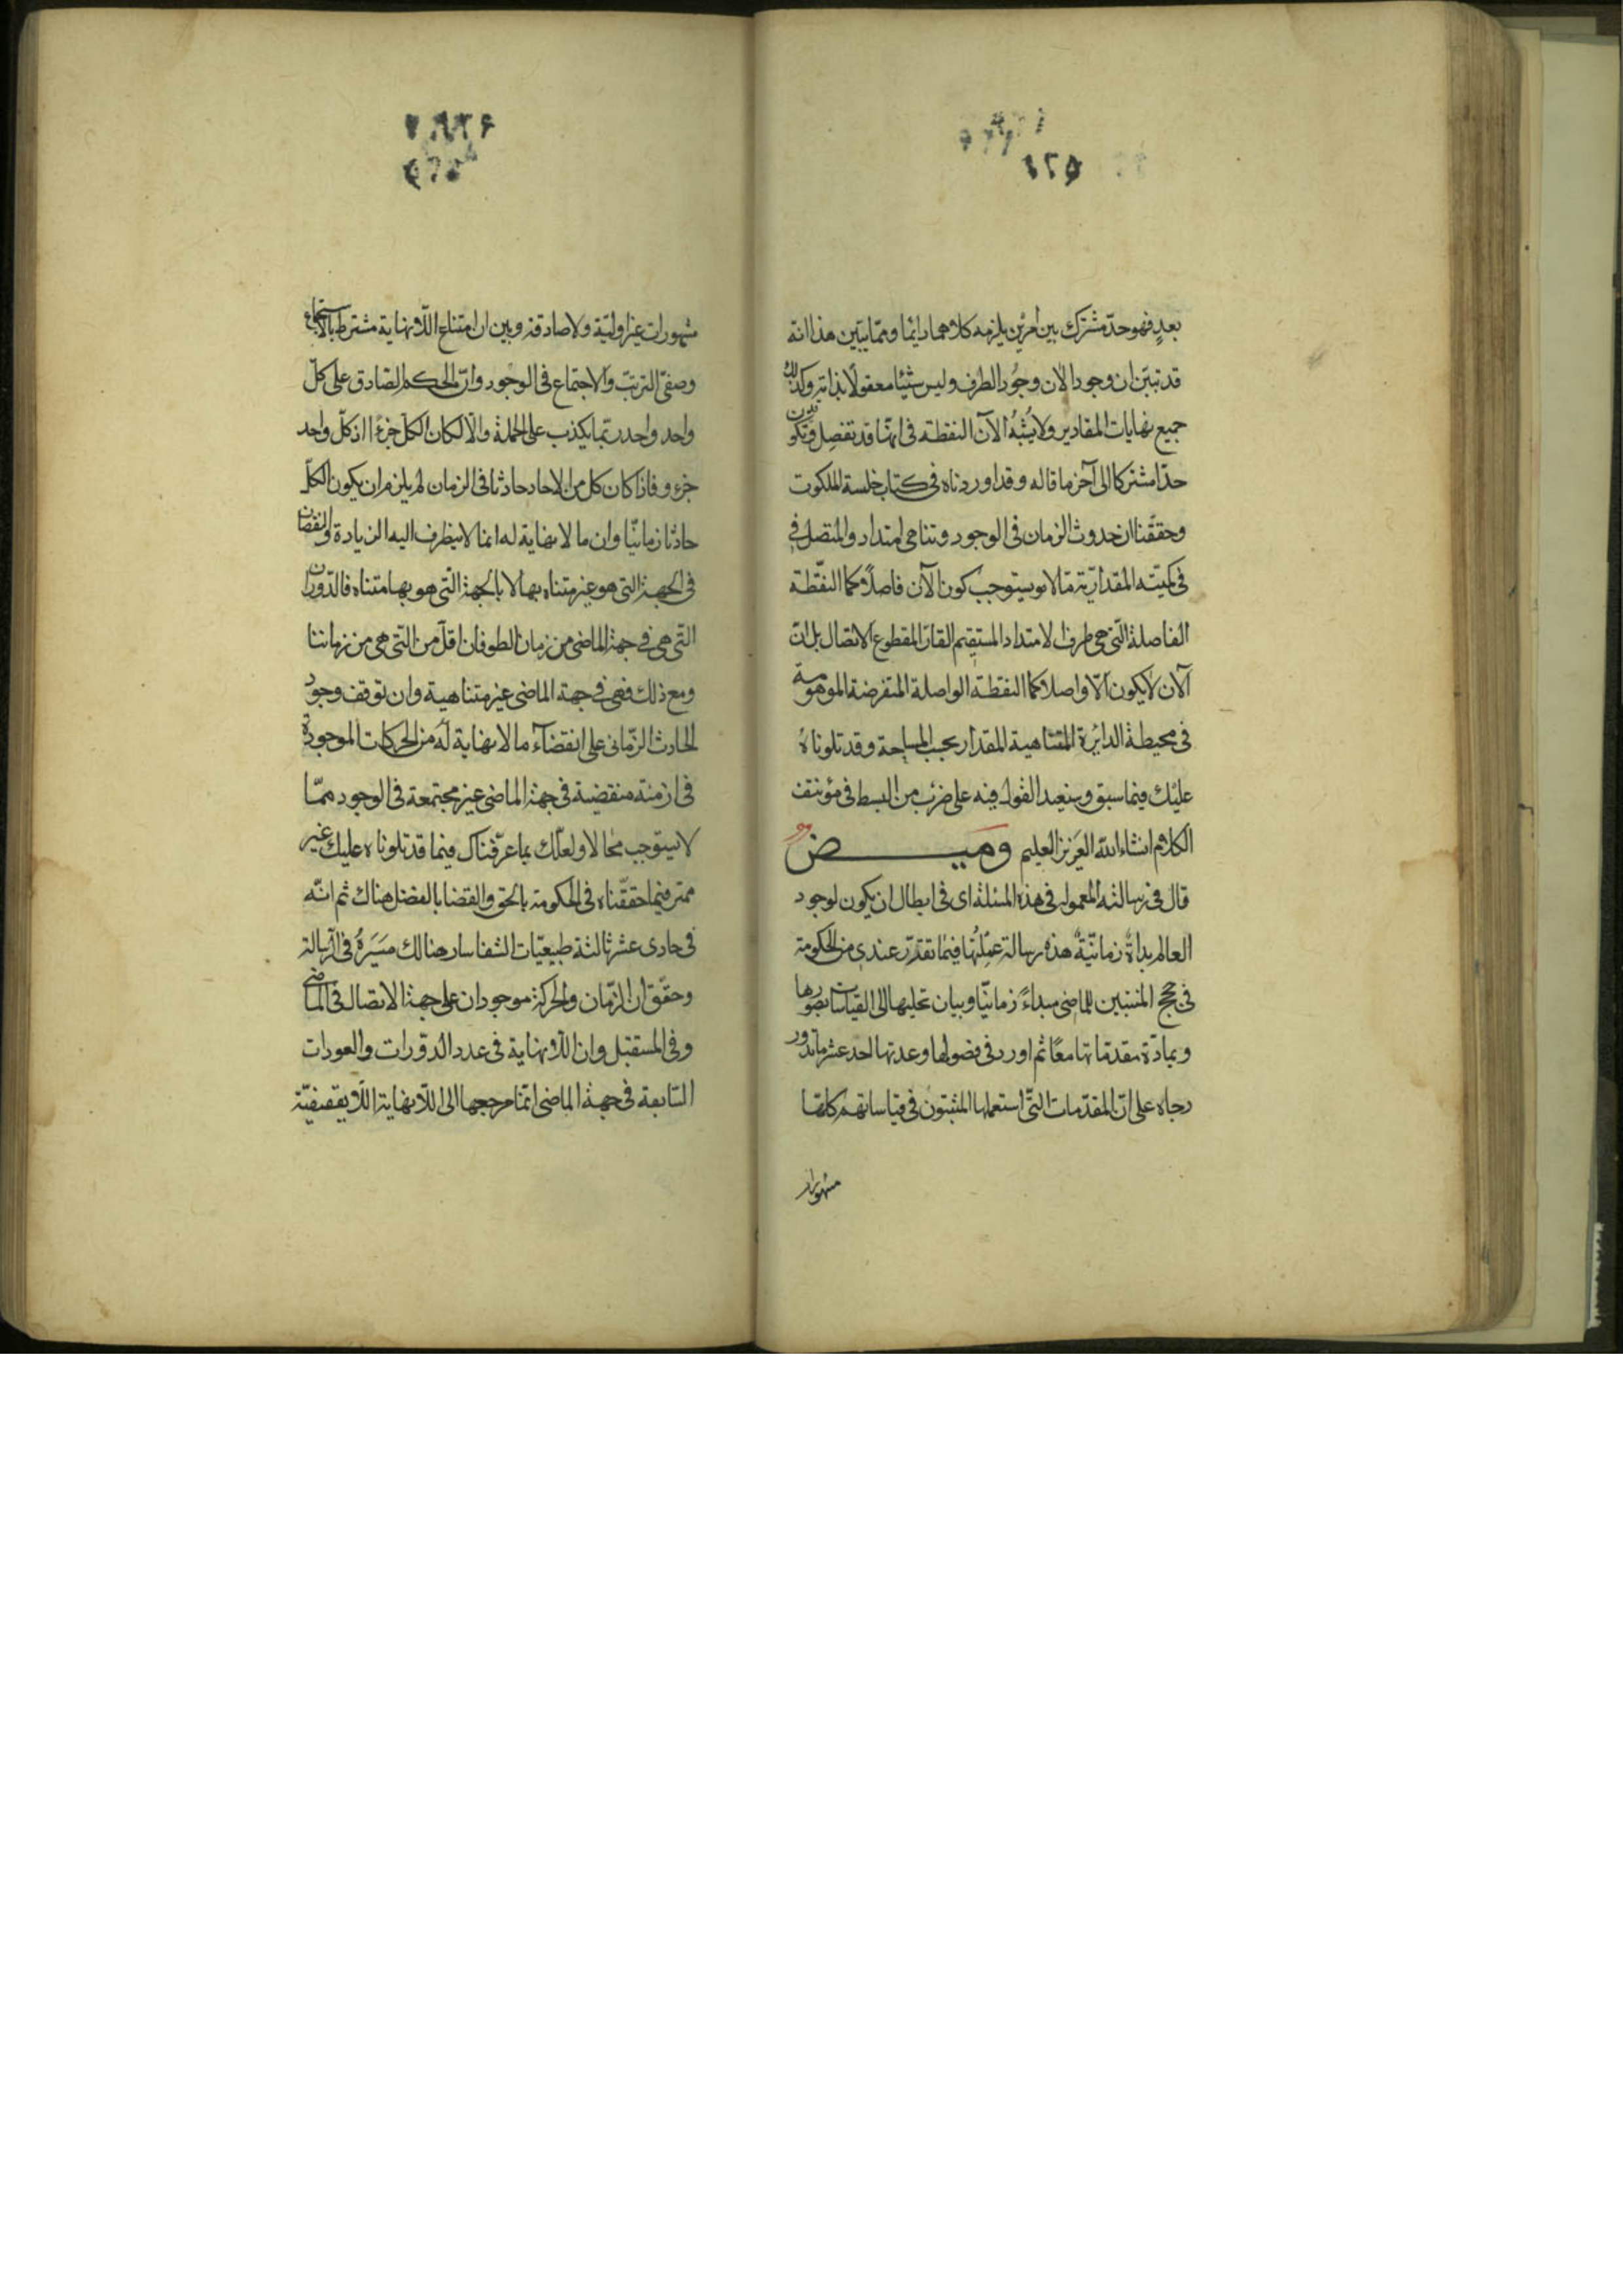 بعد فهو حدّ مشترك بين امرين يلزمه كلاهما دايما وممّا يبيّن هذا انه
قد تبيّن ان وجود الان وجود الطرف وليس شيئا معقولا بذاته وكذلك
جميع نهايات المقادير ولا يشبه الآن النقطة فى انها قد تفصل وتكون
حدّا مشتركا الى آخر ما قاله وقد اوردناه فى كتاب خلسة الملكوت
وحقّقنا ان حدوث الزمان فى الوجود وتناهى امتداده المتصل فى
فى كميّته المقداريّة ممّا لا يستوجب كون الآن فاصلا كما النقطة
الفاصلة الّتى هى طرف الامتداد المستقيم القارّ المقطوع الاتصال بل انّ
الآن لا يكون الّا واصلا كما النقطة الواصلة المتفرضة الموهومة
فى محيطة الدايرة المتناهية المقدار بحسب المساحة وقد تلوناه
عليك فيما سبق وسنعيد القول فيه على ضرب من البسط فى مؤتنف
الكلام انشاء الله العزيز العليم وميض
قال فى رسالته المعمولة فى هذه المسئلة اى فى ابطال ان يكون لوجود
العالم بداة زمانيّة هذه رسالة عملتها فيما تقدّر عندى من الحكومة
فى حجج المثبتين للماضى مبداءً زمانيّا وبيان تحليلها الى القياسات بصورها
وبمادّة مقدماتها معًا ثم اورد فى فصولها وعدتها احد عشر ما تدور
رحاه على انّ المقدّمات التّى استعملها المثبتون فى قياساتهم كلّها
مشهورات
مشهورات غير اوليّة ولا صادقة وبين ان امتناع اللّا نهاية مشترط باستجماع
وصفىّ الترتب والاجتماع فى الوجود وانّ الحكم الصّادق على كلّ
واحد واحد ربّما يكذب على الجملة والّا لكان الكلّ جزءًا اذ كلّ واحد
جزء و فاذا كان كل من الاحاد حادثا فى الزمان لم يلزم ان يكون الكلّ
حادثا زمانيّا وان ما لا نهاية له انما لا يتطرف اليه الزيادة والنقصان
فى الجهة التى هو غير متناه بها لا بالجهة الّتى هو بها متناه فالدّوران
التّى هى فى جهة الماضى من زمان الطوفان اقلّ من التّى هى من زماننا
ومع ذلك فهى فى جهة الماضى غير متناهية وان توقف وجود
الحادث الزّمانى على انقضاء ما لا نهاية له من الحركات الموجودة
فى ازمنة منقضية فى جهة الماضى غير مجتمعة فى الوجود ممّا
لا يستوجب محالا ولعلّك بما عرّفناك فيما قد تلوناه عليك غير
ممتر فيما حقّقناه فى الحكومة بالحق والقضا بالفضل هناك ثم انّه
فى حادى عشر ثالثة طبيعيّات الشفا سار هنالك مسيره فى الرسالة
وحقّق ان الزّمان والحركة موجودان على جهة الاتصال فى الماضى
وفى المستقبل وان اللّا نهاية فى عدد الدّورات والعودات
السّابقة فى جهة الماضى انّما مرجعها الى اللّا نهاية اللّا يقفيّة